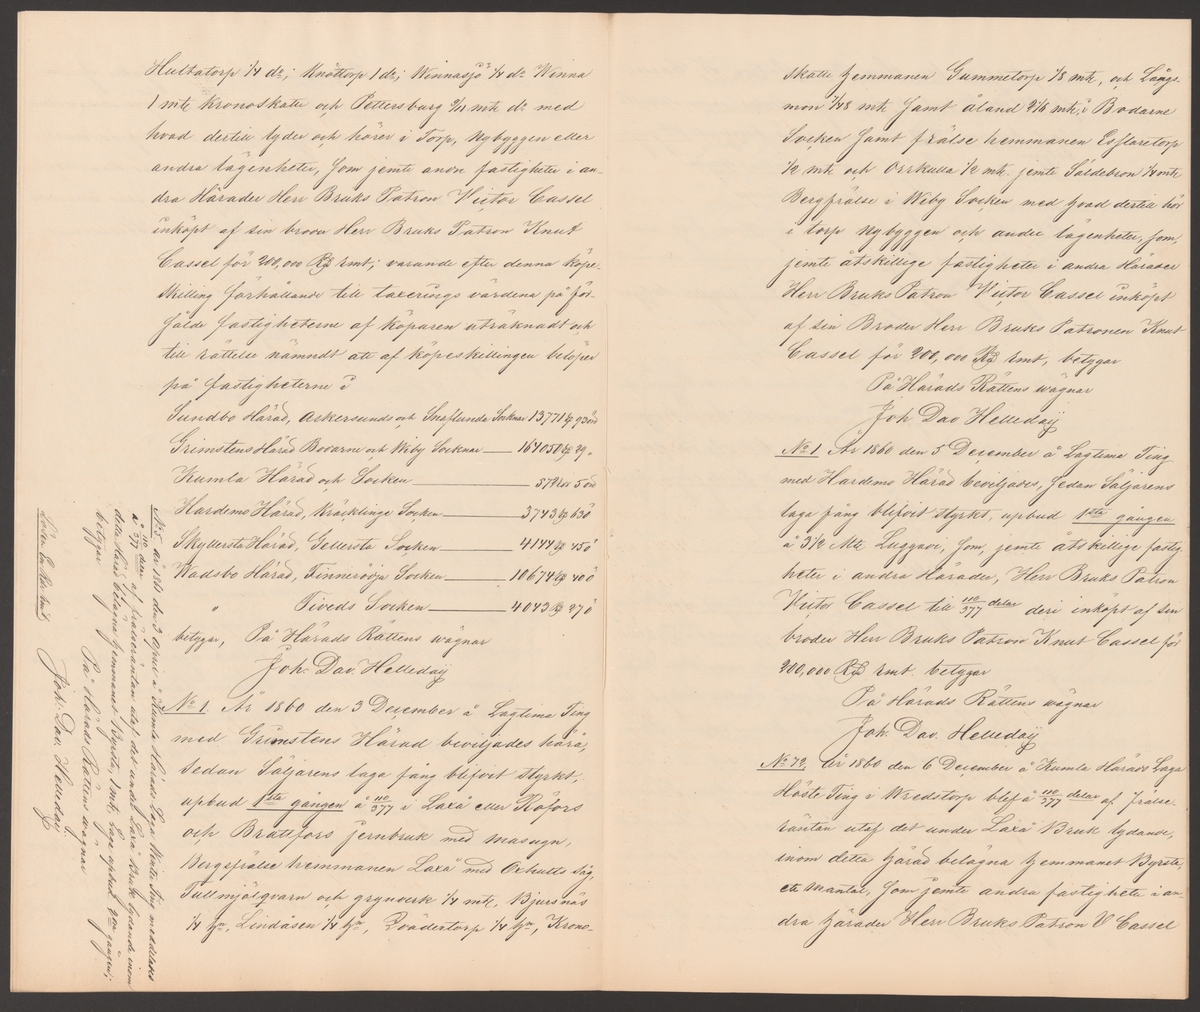 Hultatorp 1/4 do; Knöttorp 1 do; Winnasjö 1/4 do Winna
1 mtl Kronoskatte och Pettersburg mtl do med
hvad dertill lyder och hörer i Torp, Nybyggen eller
andra lägenheter, som jemte andra fastigheter i an-
dra Härader Herr Bruks Patron Victor Cassel
inköpt af sin broder Herr Bruks Patron Knut
Cassel för 200,000 Rd rmt; varande efter denna köpe-
skilling förhållande till taxerings värdena på för-
sålde fastigheterne af köparen uträknadt och
till rättelse nämndt att af köpeskillingen belöper
på fastigheterne i
Sundbo Härad, Askersunds och Snaflunda Socknar 13771 93 öre
Grimstens Härad Bodarne och Wiby Socknar 164050 29
Kumla Härad och Socken 572 5 öre
Hardems Härad, Kräcklinge Socken 3743 63 ö
Skyllersta Härad, Gellersta Socken 4144 45 ö
Wadsbo Härad, Finneröja Socken 10674 40 ö
" Tiveds Socken 4043 27 ö
betygar, På Härads Rättens wägnar
Joh. Dav. Helleday
No 1. År 1860 den 3 December å Lagtima Ting
med Grimstens Härad beviljades härå,
sedan Säljarens laga fång blifvit styrkt,
upbud 1sta gången å 110/377 i Laxå eller Röfors
och Brattfors jernbruk med masugn,
Bergsfrälse hemmanen Laxå med Oxhults såg,
Tullmjölqvarn och grynverk 1/4 mtl, Bjursnäs
1/4 hn, Lindåsen 1/4 hn, 1/4 hn, Krono-
No 5. År 1861 den 3 April å Kumla Härads Laga Winter Ting meddelades
å 110/377 delar af frälseräntan utaf det under Laxå Bruk lydande, inom
detta Härad belägna hemmanet Byrsta, 1 mtl, laga upbud 2dra gången;
betygar
På Härads Rättens wägnar
Joh. Dav. Helleday
Lösen En Rdr Rmt
skatte hemmanen Gummetorp 1/8 mtl, och Långs-
mon 7/48 mtl samt Åland mtl; i Bodarne
Socken samt frälse hemmanen Esflaretorp
1/2 mtl och Orrkulla 1/2 mtl jemte Säldebron 1/4 mtl
Bergfrälse i Wiby Socken med hvad dertill hör
i torp nybyggen och andre lägenheter, som,
jemte åtskillige fastigheter i andra Härader
Herr Bruks Patron Victor Cassel inköpt
af sin Broder Herr Bruks Patronen Knut
Cassel för 200,000 Rd rmt, betygar
På Härads Rättens wägnar
Joh Dav Helleday
No 1 År 1860 den 5 December å Lagtima Ting
med Hardems Härad beviljades, sedan Säljarens
laga fång blifvit styrkt, upbud 1sta gången
å 3 1/2 Mtl Luggavi, som, jemte åtskillige fastig-
heter i andra Härader, Herr Bruks Patron
Victor Cassel till 110/377 delar deri inköpt af sin
broder Herr Bruks Patron Knut Cassel för
200,000 Rd rmt. betygar
På Härads Rättens wägnar
Joh. Dav. Helleday
No 72. År 1860 den 6 December å Kumla Härads Laga
Höste Ting i Wredstorp blef å 110/377 delar af frälse-
räntan utaf det under Laxå Bruk lydande,
inom detta härad belägna hemmanet Byrsta,
ett Mantal, som jemte andra fastigheter i an-
dra härader Herr Bruks Patron V Cassel